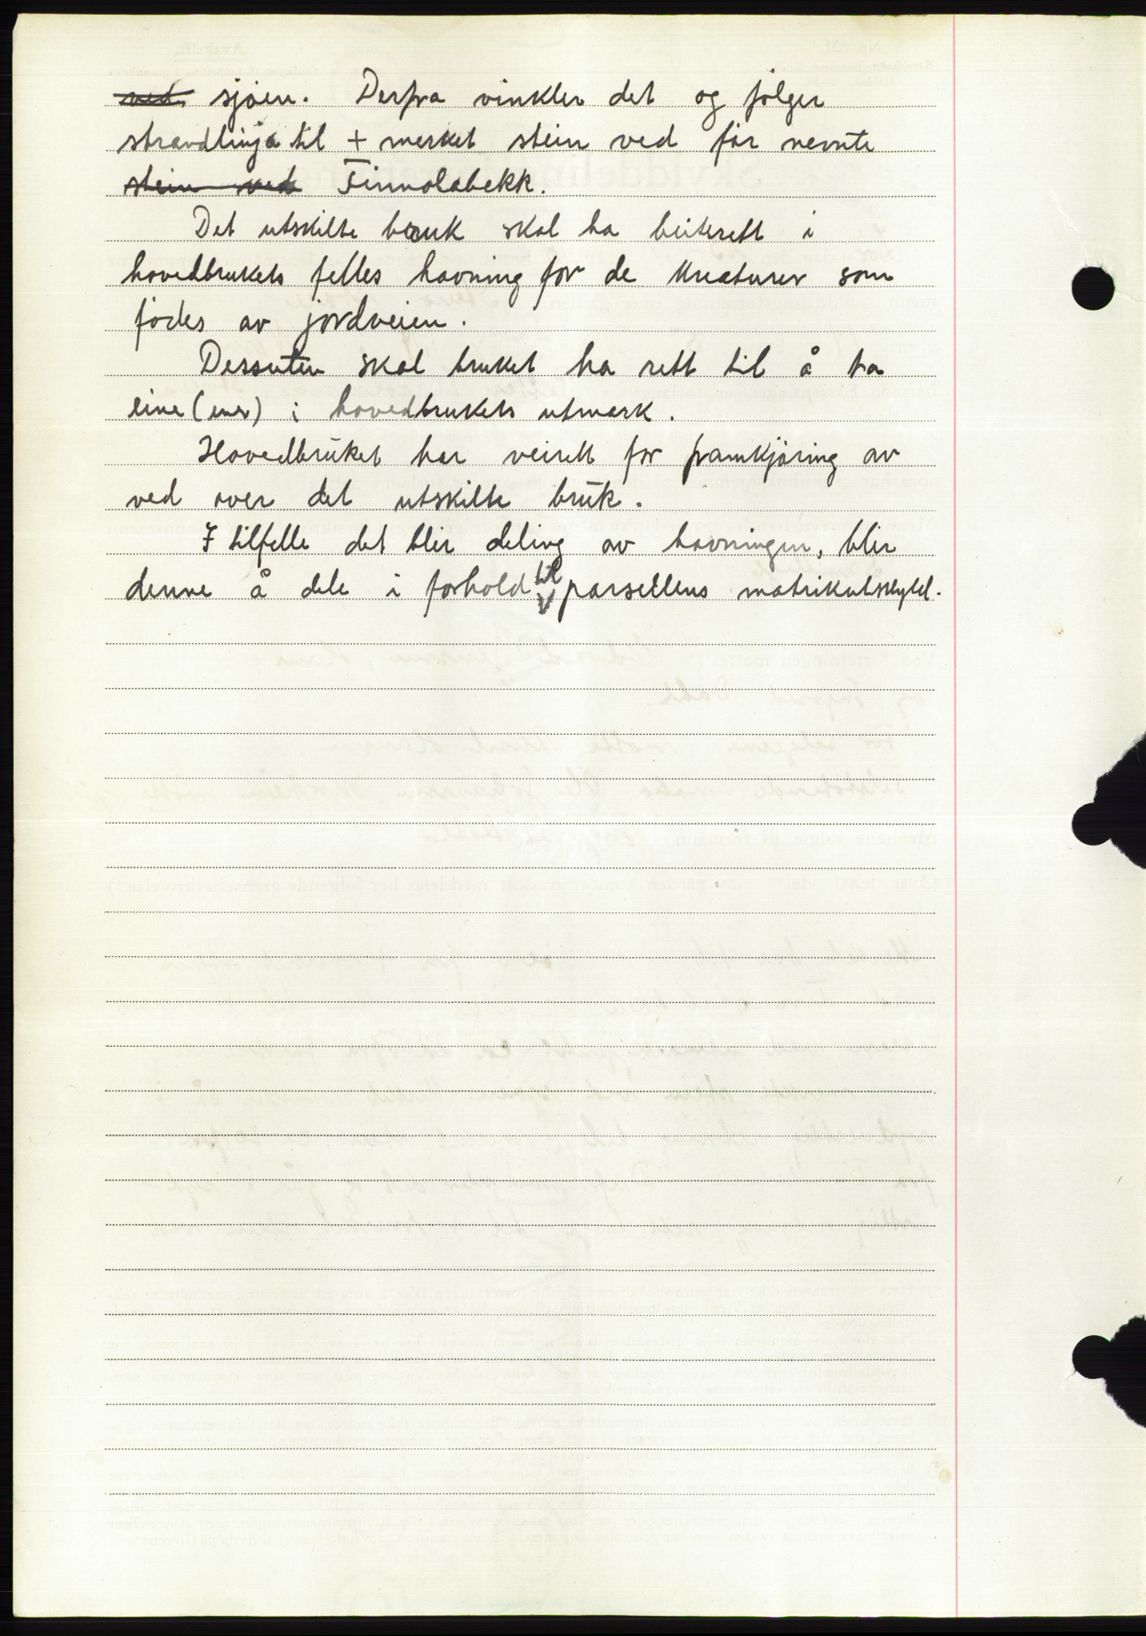 ved sjøen. Derfra vinkler det og følger
strandlinja til + merket stein ved før nevnte
stein ved Finnolabekk.
Det utskilte bruk skal ha beiterett i
hovedbrukets felles havning for de kreaturer som
fødes av jordveien.
Dessuten skal bruket ha rett til å ta
eine (ener) i hovedbrukets utmark.
Hovedbruket har veirett for framkjøring av
ved over det utskilte bruk.
I tilfelle det blir deling av havningen, blir
denne å dele i forhold til parsellens matrikulskyld.